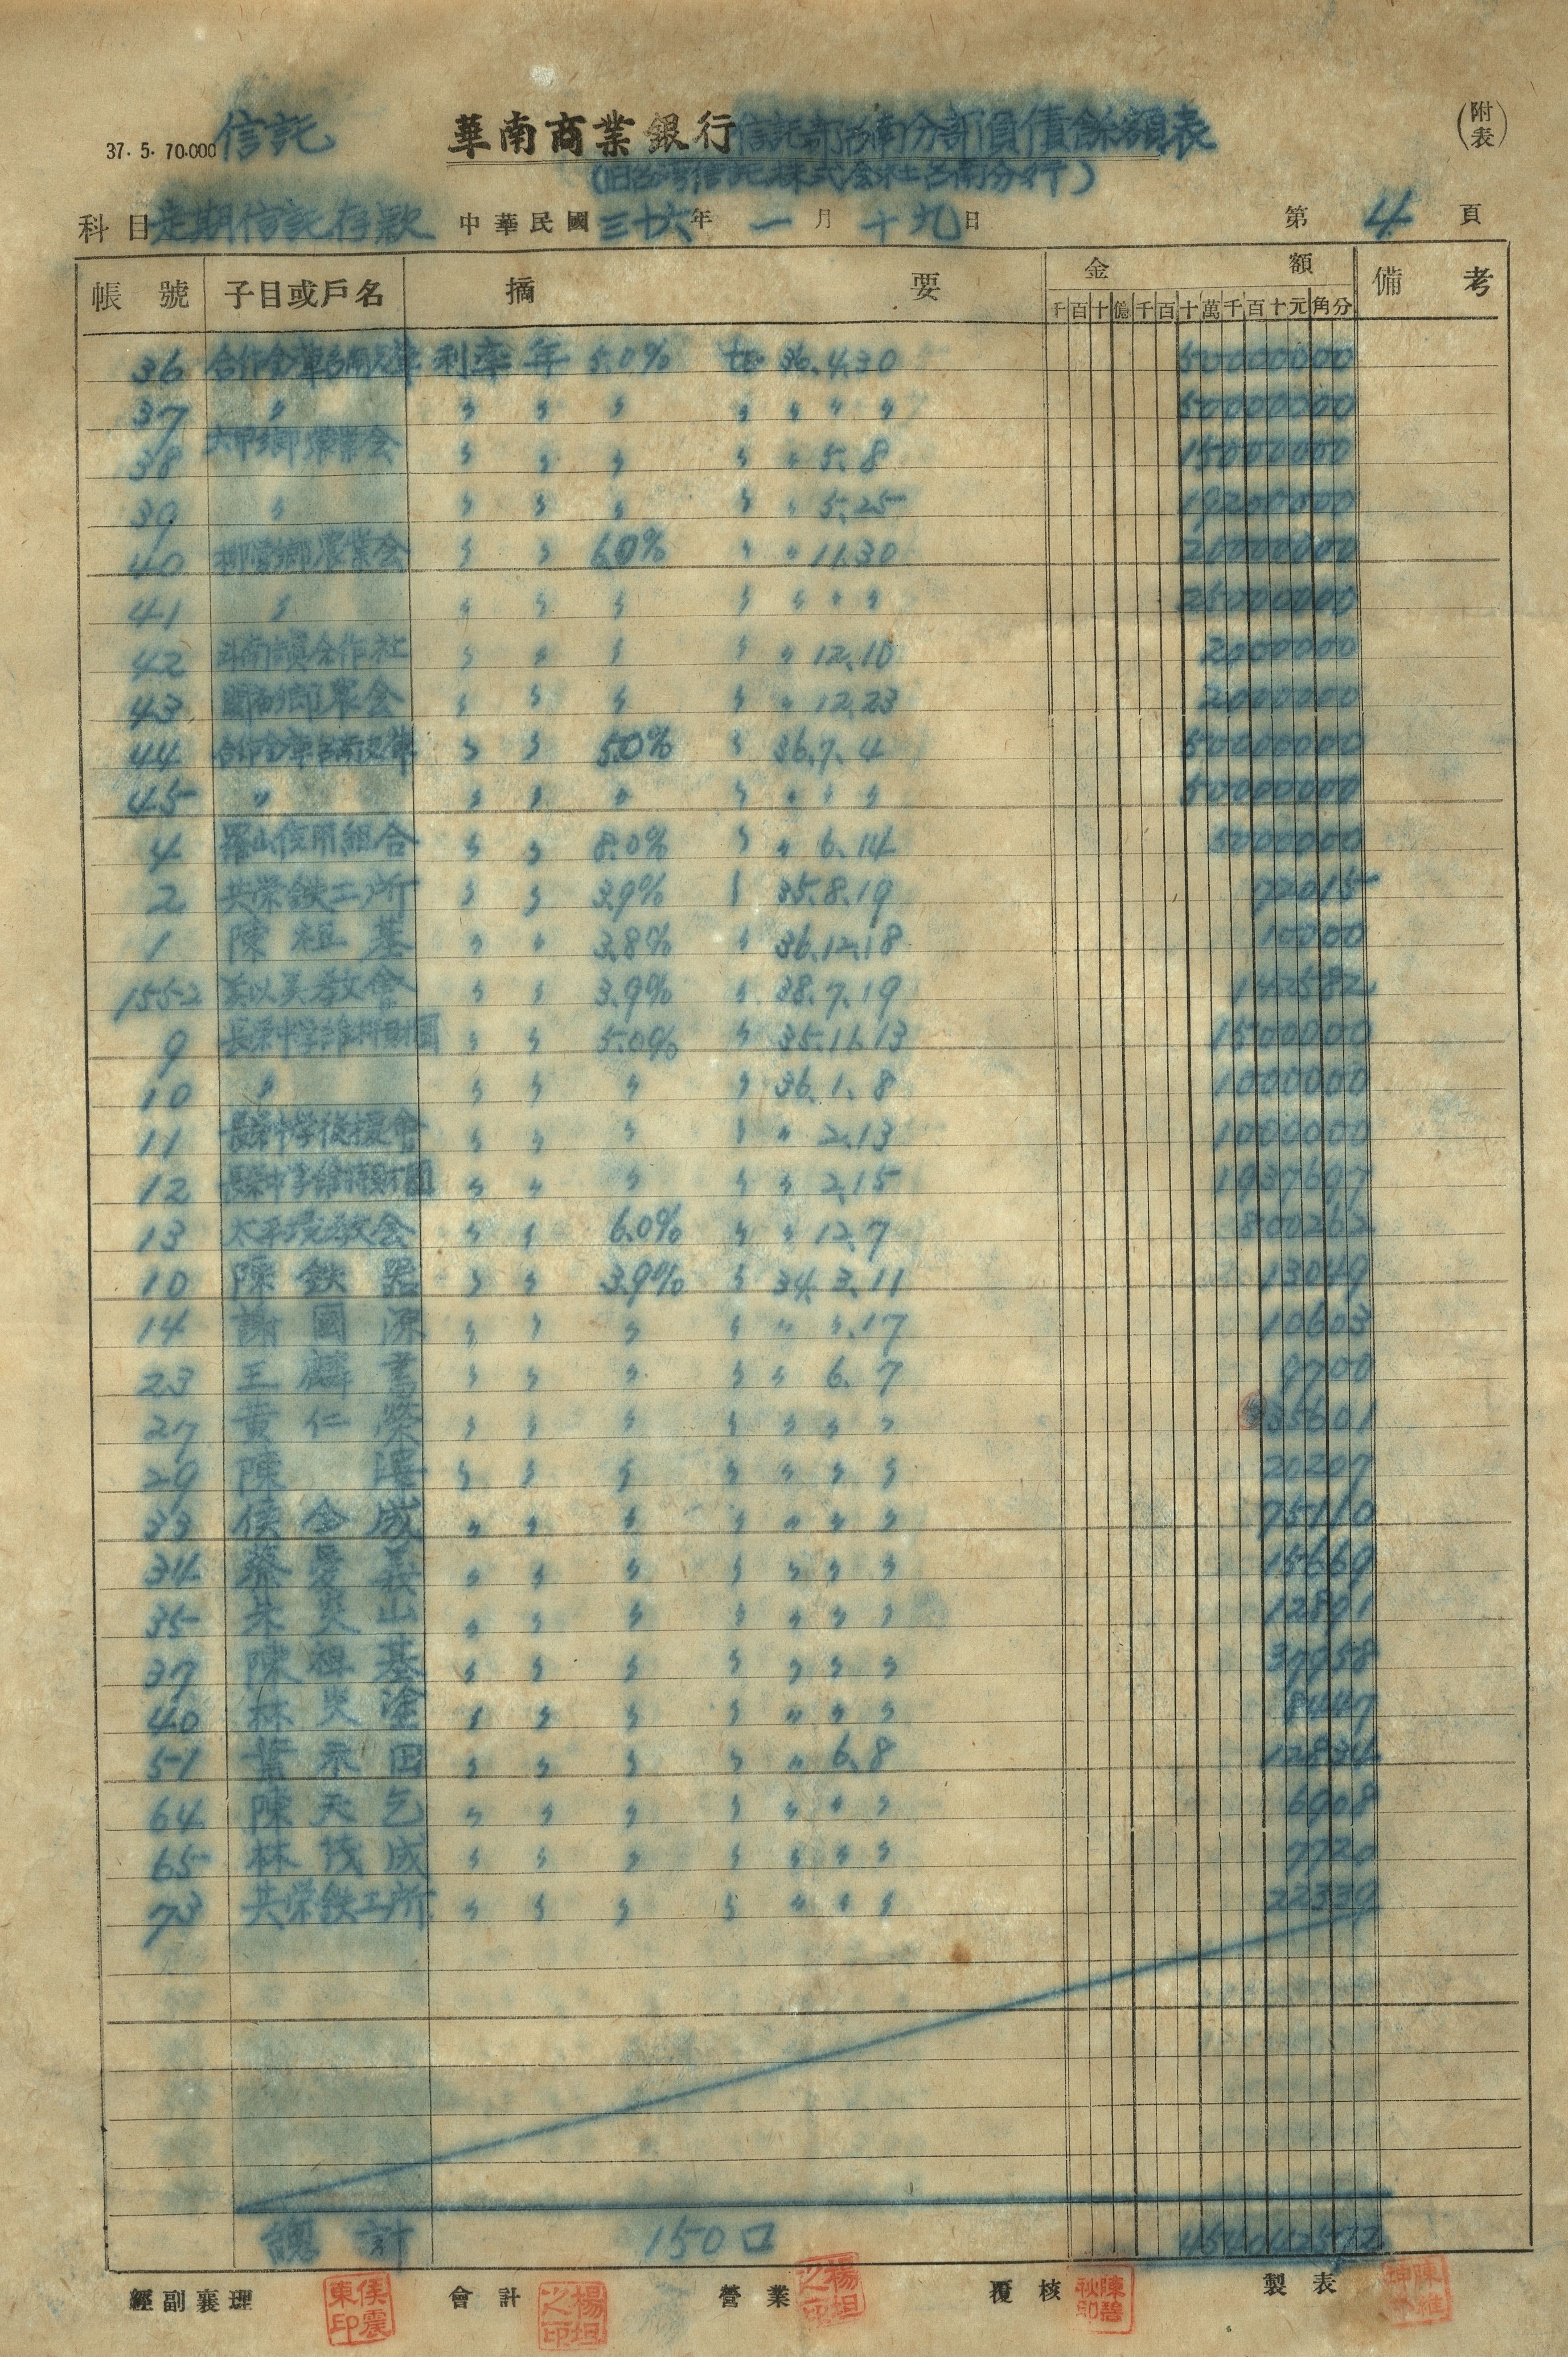 (附表)
37.5.70.000 信託 華南商業銀行信託部台南分部價債餘額表
(旧台湾信託株式会社台南分行)
科目 定期信託存款 中華民國三十六年一月十九日 第4頁
帳號 子目或戶名 摘要 金額 備考
千百十億千百十萬千百十元角分
36 合作金庫台南支庫 利率 年 5.0% 至 36.4.30 50000000
37 〃 〃 〃 〃 〃 〃 〃 〃 50000000
38 六甲鄉農業会 〃 〃 〃 〃 〃 5.8 15000000
39 〃 〃 〃 〃 〃 〃 5.25 19200000
40 柳営鄉農業会 〃 〃 6.0% 〃 〃 11.30 20000000
41 〃 〃 〃 〃 〃 〃 〃 〃 25000000
42 斗南鎮合作社 〃 〃 〃 〃 〃 12.10 2000000
43 鄉農会 〃 〃 〃 〃 〃 12.23 2000000
44 合作金庫台南支庫 〃 〃 5.0% 〃 36.7.4 50000000
45 〃 〃 〃 〃 〃 〃 〃 〃 50000000
4 羅山信用組合 〃 〃 8.0% 〃 〃 6.14 5000000
2 共栄鉄工所 〃 〃 3.9% 〃 35.8.19 72015
1 陳祖基 〃 〃 3.8% 〃 36.12.18 10000
155-2 美以美教會 〃 〃 3.9% 〃 38.7.19 142582
9 長栄中学維持財團 〃 〃 5.0% 〃 35.11.13 1500000
10 〃 〃 〃 〃 〃 36.1.8 1000000
11 長栄中学後援會 〃 〃 〃 〃 〃 2.13 1000000
12 長栄中学維持財團 〃 〃 〃 〃 〃 2.15 1937697
13 太平境教会 〃 〃 6.0% 〃 〃 12.7 800262
10 陳鉄器 〃 〃 3.9% 〃 34.3.11 13049
14 謝國源 〃 〃 〃 〃 〃 〃.17 10603
23 王麟書 〃 〃 〃 〃 〃 6.7 9700
27 黄仁榮 〃 〃 〃 〃 〃 〃 〃 35601
29 陳 〃 〃 〃 〃 〃 〃 〃 20207
33 侯全成 〃 〃 〃 〃 〃 〃 〃 75110
34 蔡愛義 〃 〃 〃 〃 〃 〃 〃 15669
35 朱炎山 〃 〃 〃 〃 〃 〃 〃 12891
37 陳祖基 〃 〃 〃 〃 〃 〃 〃 37958
40 林炎塗 〃 〃 〃 〃 〃 〃 〃 8447
51 葉禾田 〃 〃 〃 〃 〃 6.8 12834
64 陳天乞 〃 〃 〃 〃 〃 〃 〃 6908
65 林茂成 〃 〃 〃 〃 〃 〃 〃 7720
73 共栄鉄工所 〃 〃 〃 〃 〃 〃 〃 22339
總計 150口 454042572
經副襄理 侯震東印 會計 楊坦之印 營業 楊坦之印 覆核 陳碧秋印 製表 陳維坤印